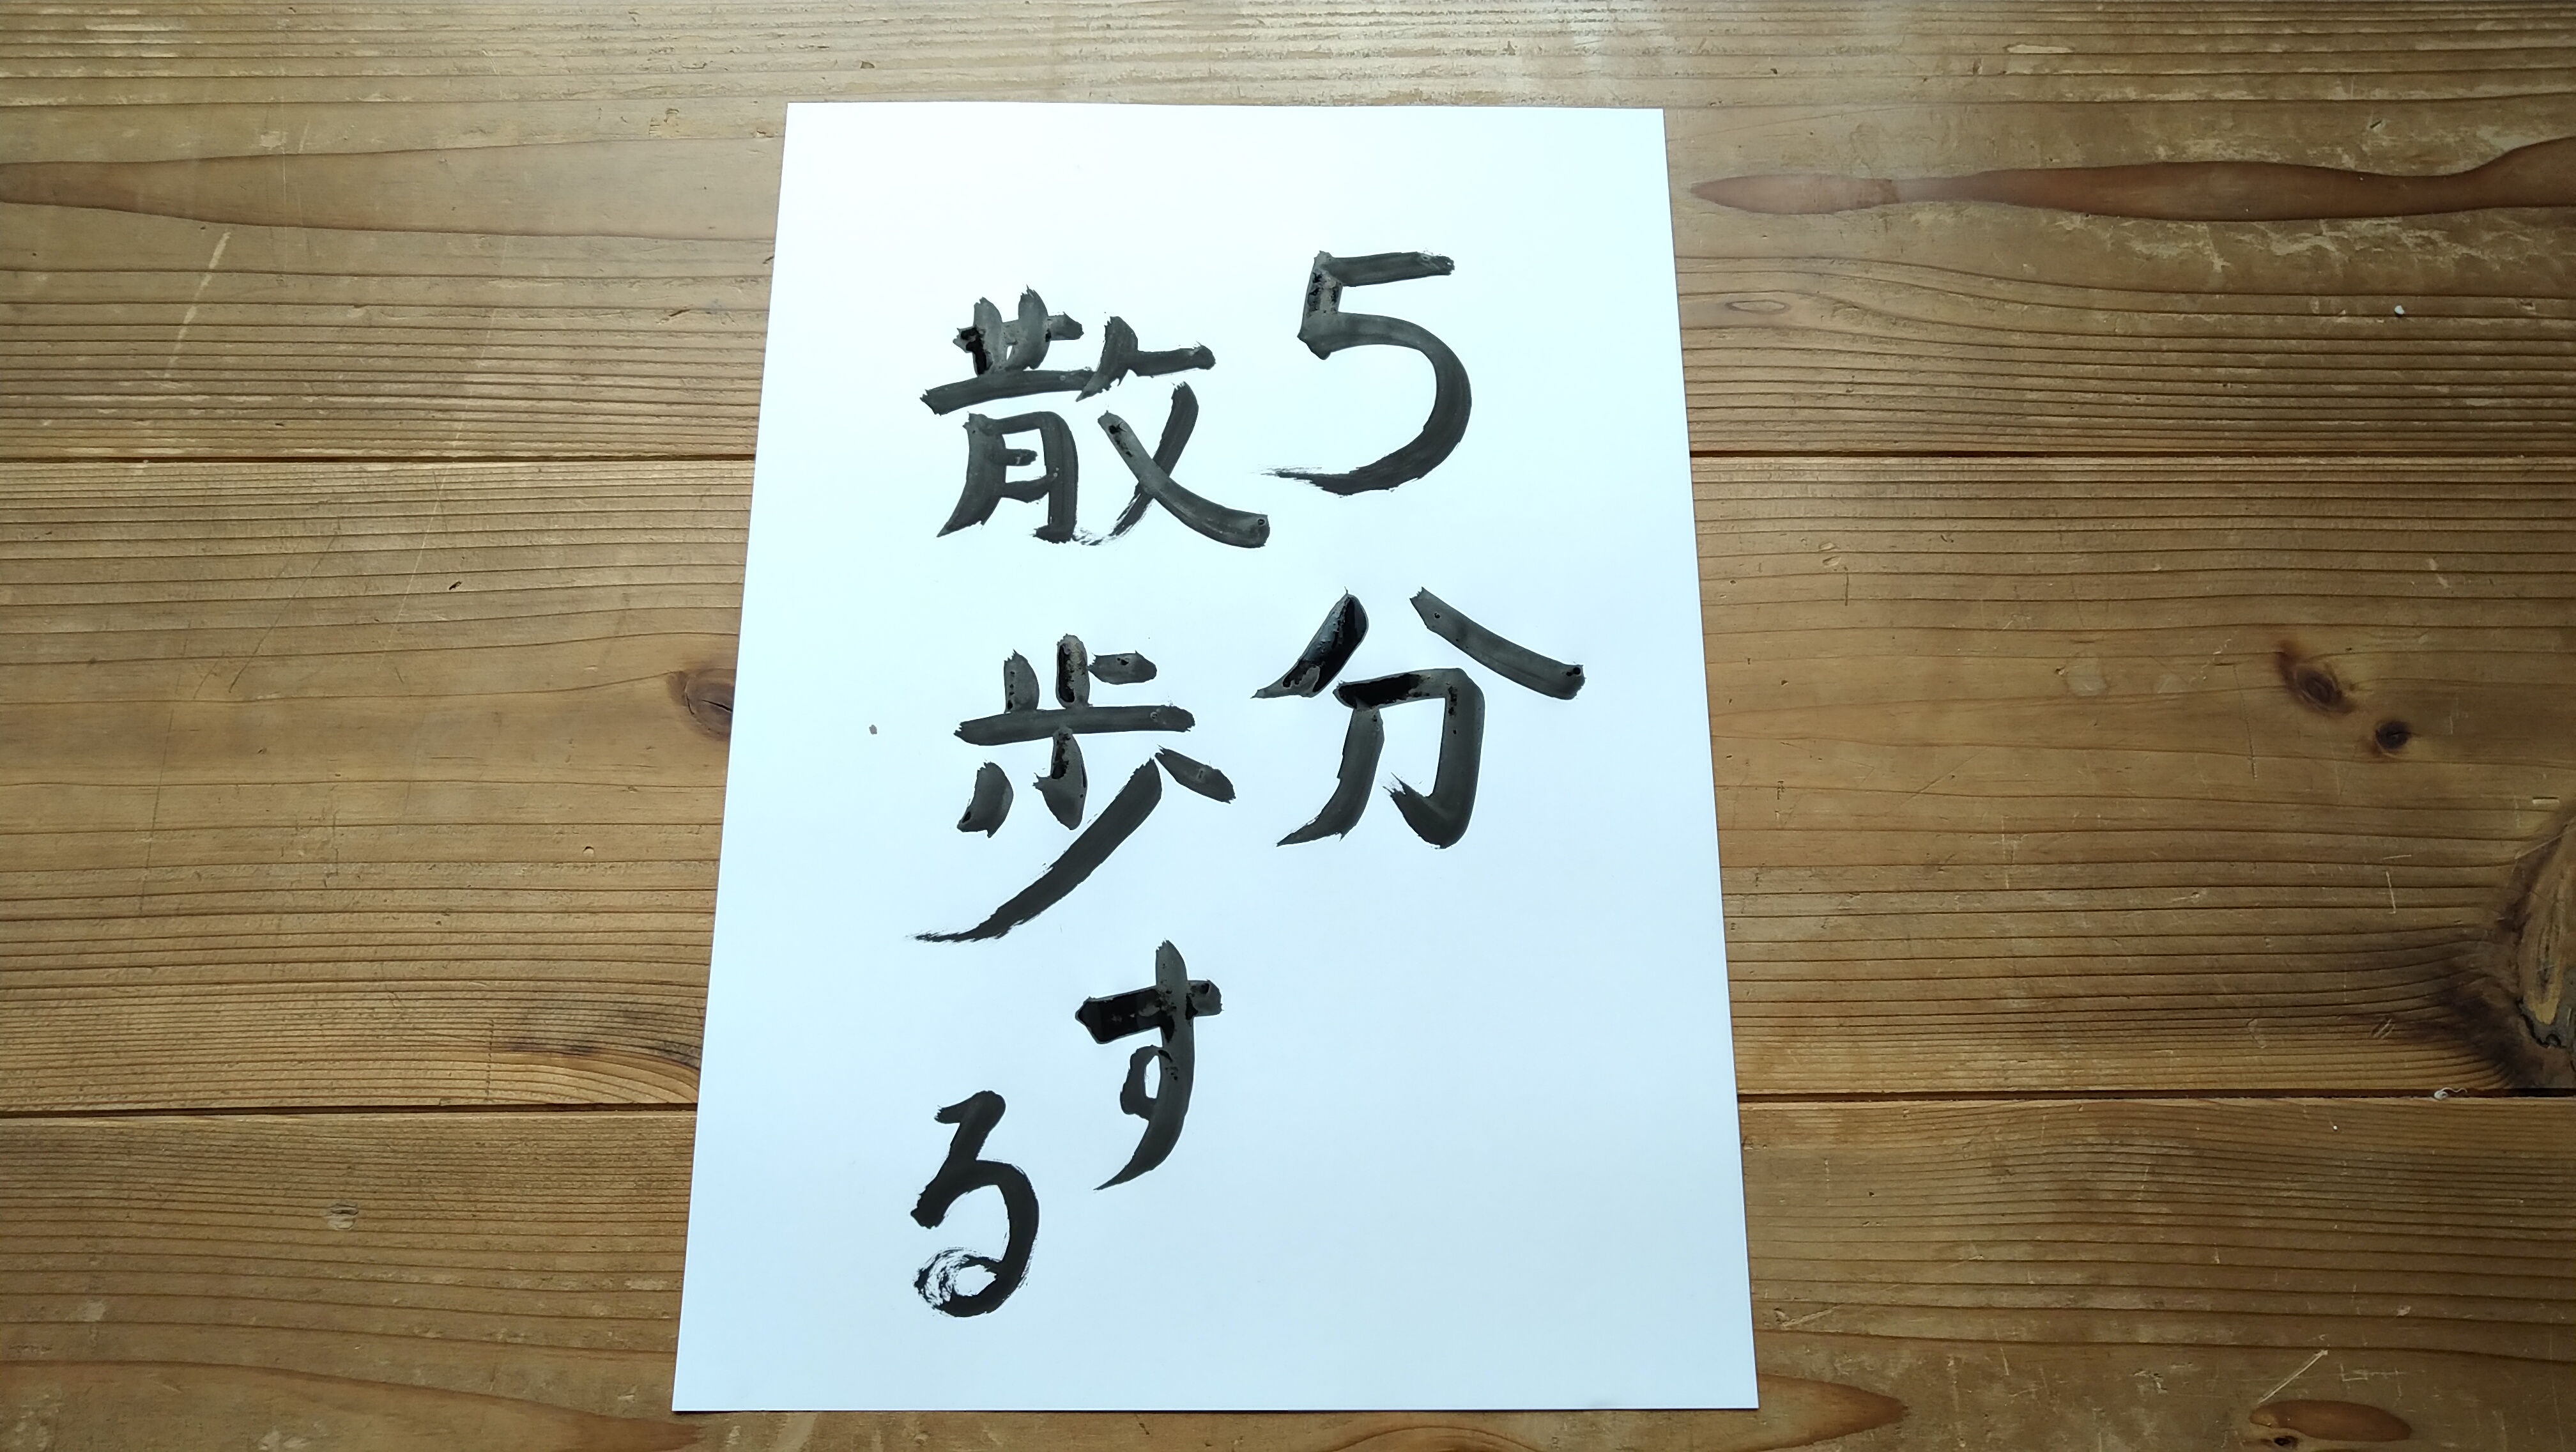 5分
散歩する